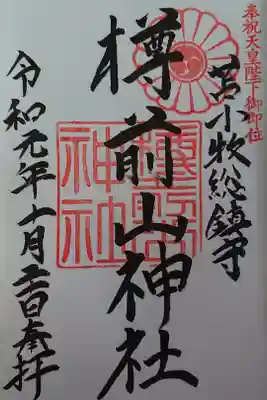 奉祝天皇陛下御即位
苫小牧総鎮守
樽前山神社
樽前山
神社
令和元年十月二日奉拝